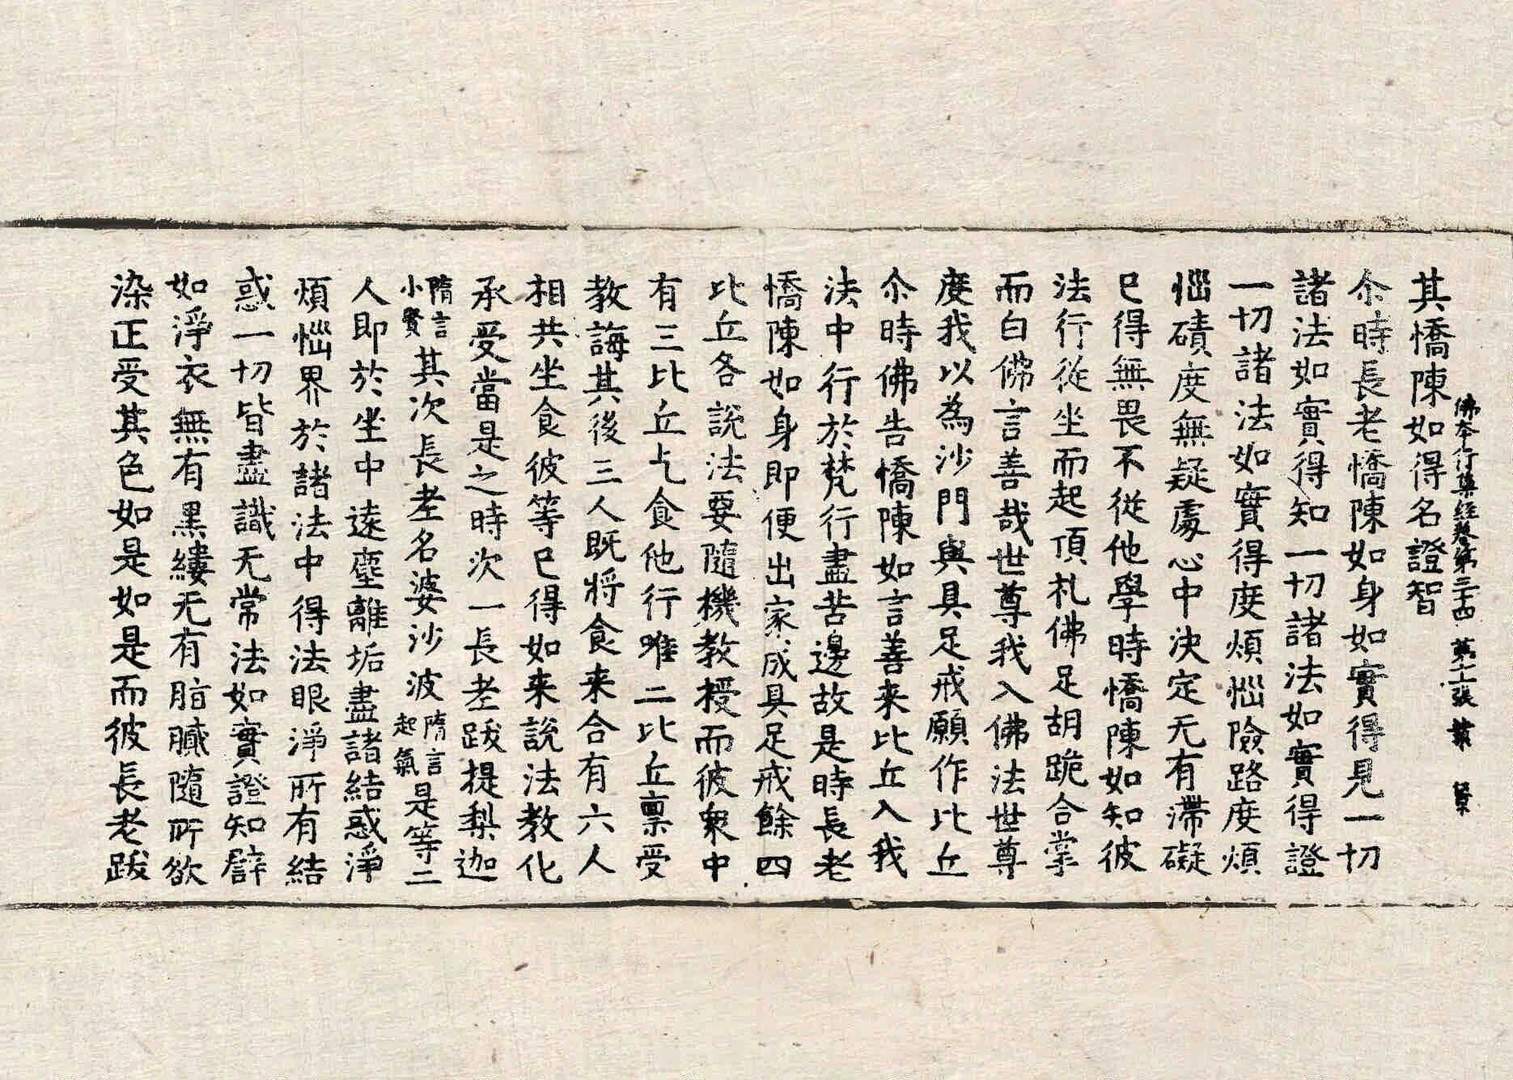 佛本行集經卷第三十四 第十一張 㲲 賢
其憍陳如得名證智
尒時長老憍陳如身如實得見一切
諸法如實得知一切諸法如實得證
一切諸法如實得度煩惱險路度煩
惱磧度無疑處心中決定无有滯礙
已得無畏不從他學時憍陳如知彼
法行從坐而起頂礼佛足胡跪合掌
而白佛言善哉世尊我入佛法世尊
度我以為沙門與具足戒願作比丘
尒時佛告憍陳如言善来比丘入我
法中行於梵行盡苦邊故是時長老
憍陳如身即便出家成具足戒餘四
比丘各說法要隨機教授而彼衆中
有三比丘乞食他行唯二比丘稟受
教誨其後三人既將食来合有六人
相共坐食彼等已得如来說法教化
承受當是之時次一長老跋提梨迦
隋言小賢其次長老名婆沙波隋言起氣是等二
人即於坐中遠塵離垢盡諸結惑淨
煩惱界於諸法中得法眼淨所有結
惑一切皆盡識无常法如實證知譬
如淨衣無有黑縷无有脂膩隨所欲
染正受其色如是如是而彼長老跋